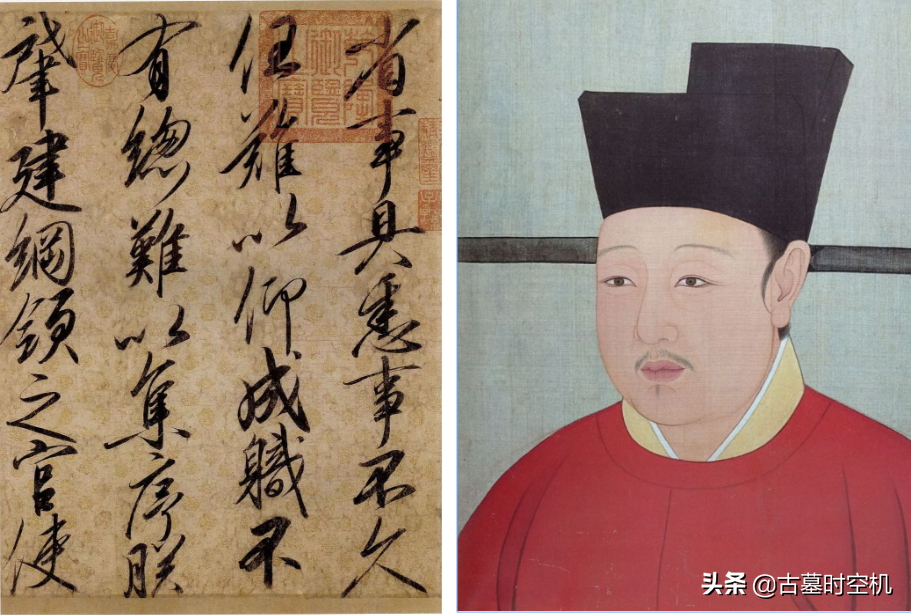 省事具悉事不久
任難以仰成職不
有總難以集序朕
肇建綱領之官使
头条 @古墓时空机